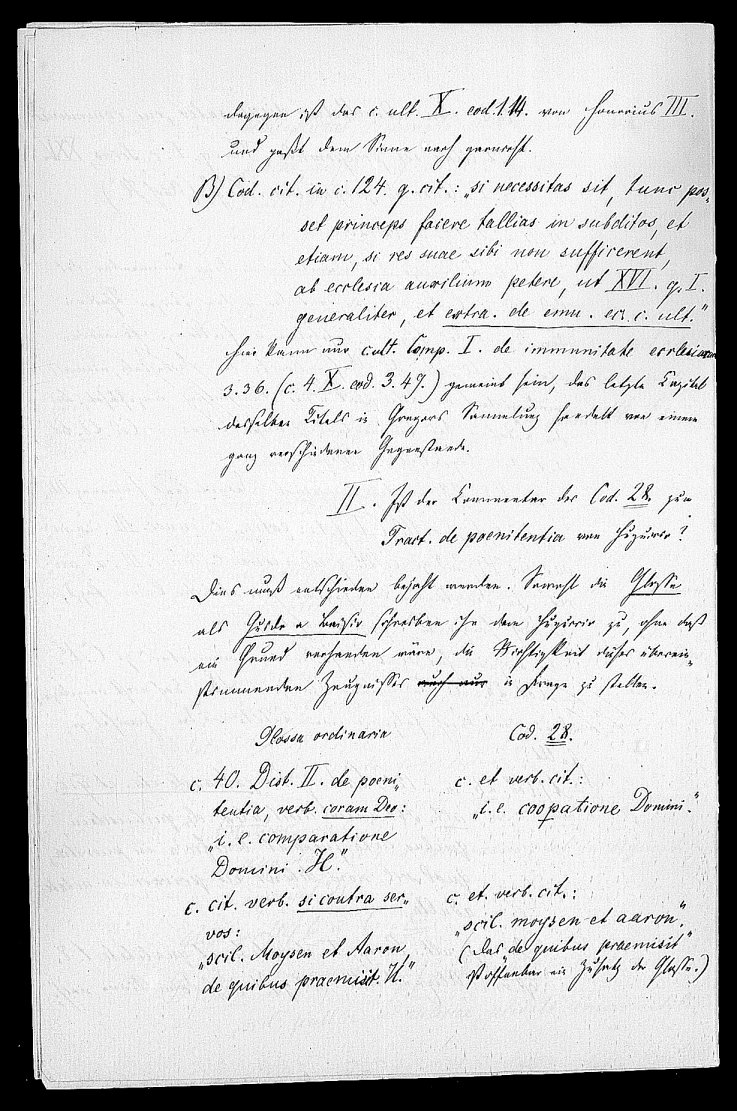 dagegen ist das c. ult. X. eod. 1.14. von Honorius III.
und paßt dem Sinne nach garnicht.
B) Cod. cit. in c. 124. q. cit.: „si necessitas sit, tunc pos„
set princeps facere tallias in subditos, et
etiam, si res suae sibi non sufficerent,
ab ecclesia auxilium petere, ut XVI. q. I.
generaliter, et extra. de emu. ec. c. ult."
Hier kann nur c. ult. Comp. I. de immunitate ecclesiarum
3.36. (c. 4. X. eod. 3.49.) gemeint sein, das letzte Capitel
desselben Titels in Gregors Sammlung handelt von einem
ganz verschiedenen Gegenstande.
II. Ist der Commentar des Cod. 28. zum
Tract. de poenitentia von Huguccio?
Dies muß entschieden bejaht werden. Sowohl die Glosse
als Guido a Baisio schreiben ihn dem Huguccio zu, ohne daß
ein Grund vorhanden wäre, die Richtigkeit dieses überein„
stimmenden Zeugnisses auch nur in Frage zu stellen.
Glossa ordinaria
c. 40. Dist. II. de poeni„
tentia, verb. coram Deo:
„i. e. comparatione
Domini. H."
c. cit. verb. si contra ser„
vos:
„scil. Moysen et Aaron,
de quibus praemisit. H."
Cod. 28.
c. et verb. cit.:
„i. e. coopatione Domini."
c. et. verb. cit.:
„scil. moysen et aaron."
(das „de quibus praemisit"
ist offenbar ein Zusatz der Glosse.)